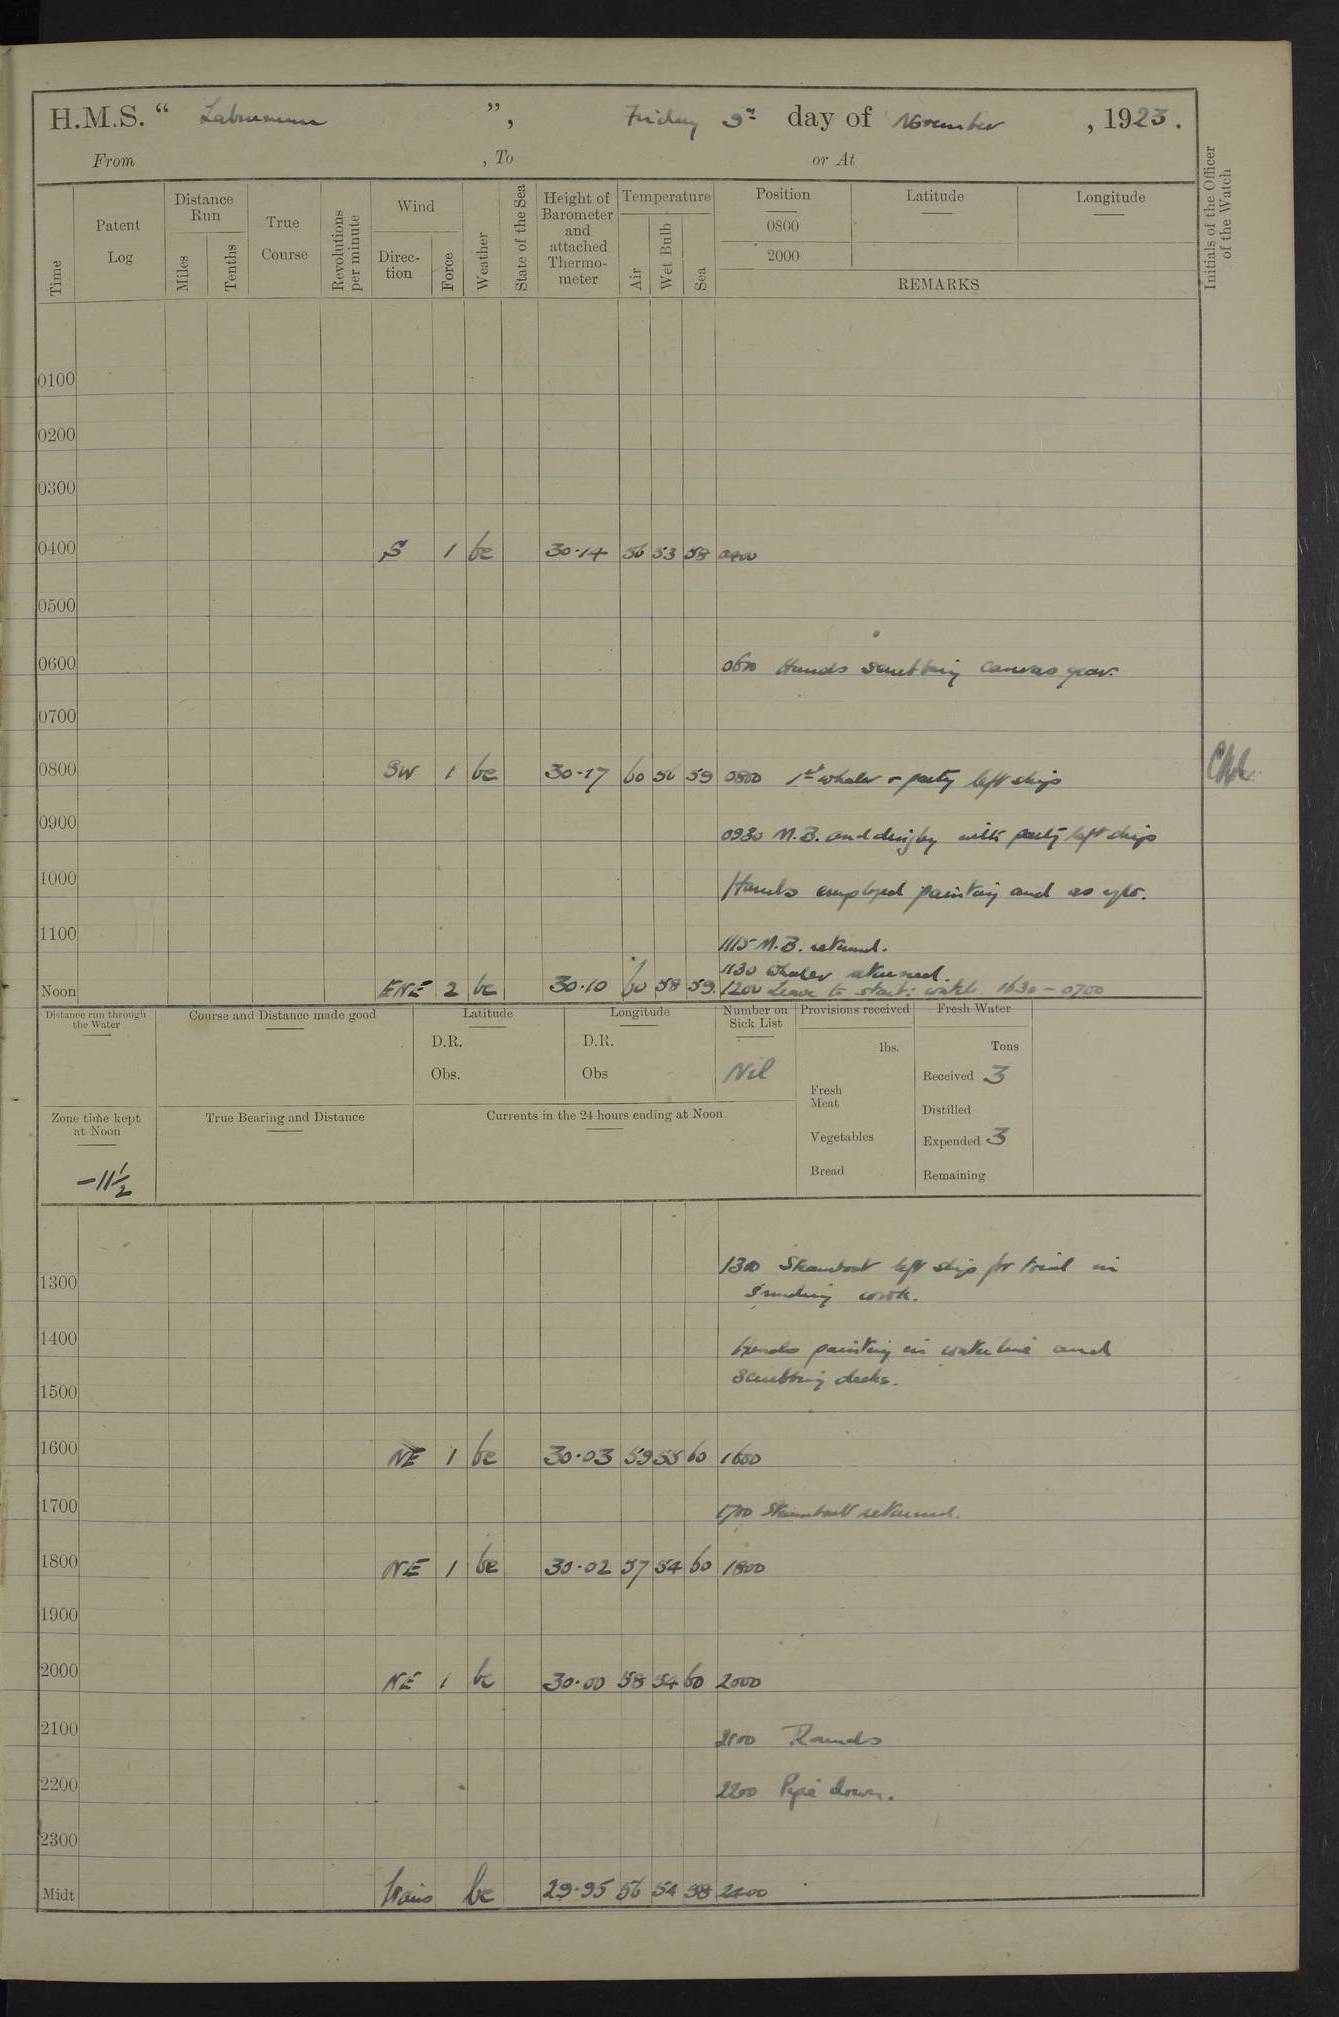 H.M.S. “ Laburnum ”, Friday 9th day of November , 1923.
From , To or At
Time
Patent Log
Distance Run
Miles
Tenths
True Course
Revolutions per minute
Wind
Direction
Force
Weather
State of the Sea
Height of Barometer and attached Thermometer
Temperature
Air
Wet Bulb
Sea
Position
0800
2000
Latitude
Longitude
REMARKS
Initials of the Officer of the Watch
0100
0200
0300
0400 S 1 bc 30·14 56 53 58 0400
0500
0600 0600 Hands scrubbing canvas gear.
0700
0800 SW 1 bc 30·17 60 56 59 0800 1st whaler & party left ship
0900 0930 M.B. and dinghy with party left ship
1000 Hands employed painting and as req.
1100 1115 M.B. returned.
1130 Whaler returned.
Noon ENE 2 bc 30·10 60 58 59. 1200 Leave to starb: watch 1630 - 0700
Distance run through the Water
Course and Distance made good
Latitude
D.R.
Obs.
Longitude
D.R.
Obs
Number on Sick List
Nil
Provisions received
lbs.
Fresh Meat
Vegetables
Bread
Fresh Water
Tons
Received 3
Distilled
Expended 3
Remaining
Zone time kept at Noon
-11½
True Bearing and Distance
Currents in the 24 hours ending at Noon
1300 1300 Steamboat left ship for trial in
work.
1400 Hands painting in waterline and
1500 scrubbing decks.
1600 NE 1 bc 30·03 59 55 60 1600
1700 1700 Steamboat returned.
1800 NE 1 bc 30·02 57 54 60 1800
1900
2000 NE 1 bc 30·00 58 54 60 2000
2100 2100 Rounds
2200 2200 Pipe down.
2300
Midt bc 29·95 56 54 58 2400